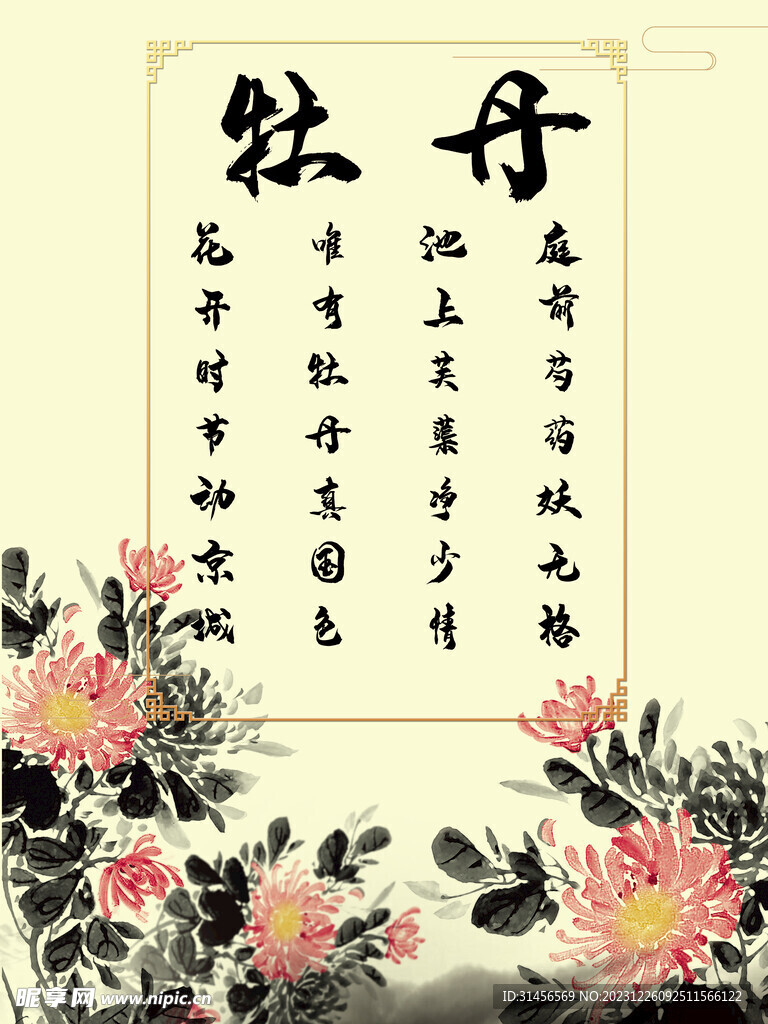 牡丹
庭前芍药妖无格
池上芙蕖净少情
唯有牡丹真国色
花开时节动京城
昵享网 www.nipic.cn
ID:31456569 NO:20231226092511566122